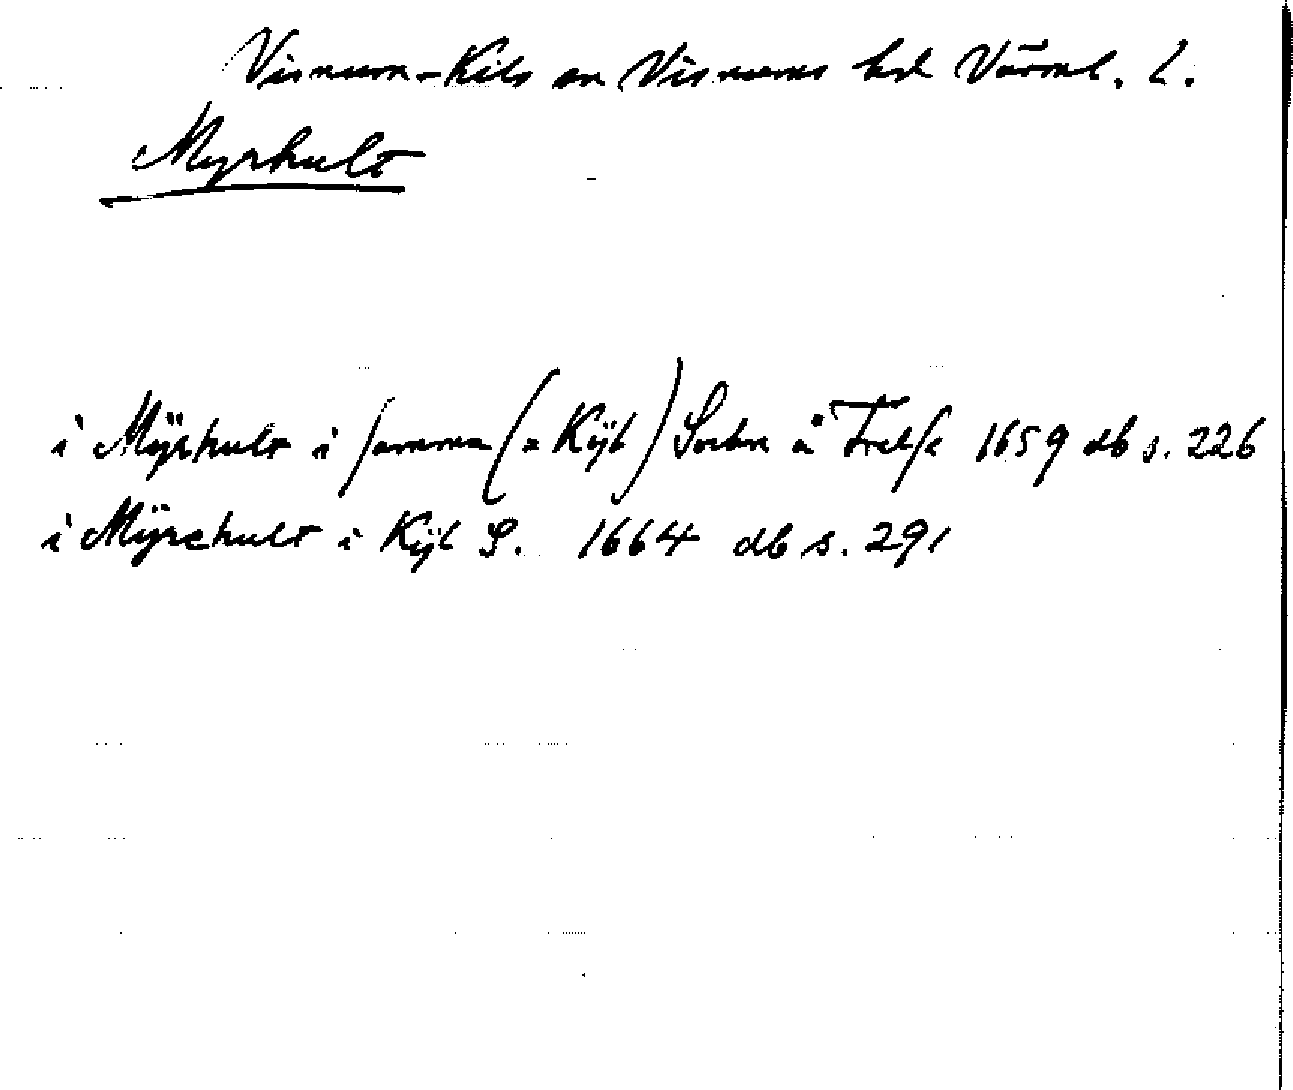 Visnum-Kils sn Visnums hd Värml. L.
Myrhult
i Mÿrhult i samma (= Kÿl) Sochn å Frelse 1659 db s. 226
i Mÿrehult i Kÿl S. 1664 db s. 291